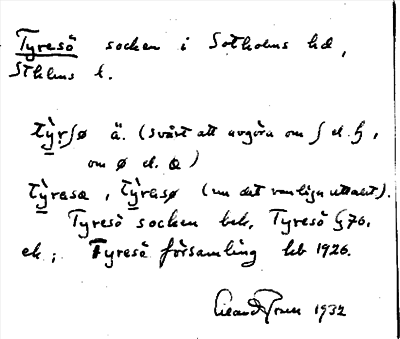 Tyresö socken i Sotholms hd,
Sthlms l.
tỳrsø ä. (svårt att avgöra om ʃ el. ꜧ,
om ø el. œ)
tỳresœ, tỳrəsø (nu det vanliga uttalet).
Tyresö socken bek. Tyresö § 76.
ek; Tyresö församling hb 1926.
1932